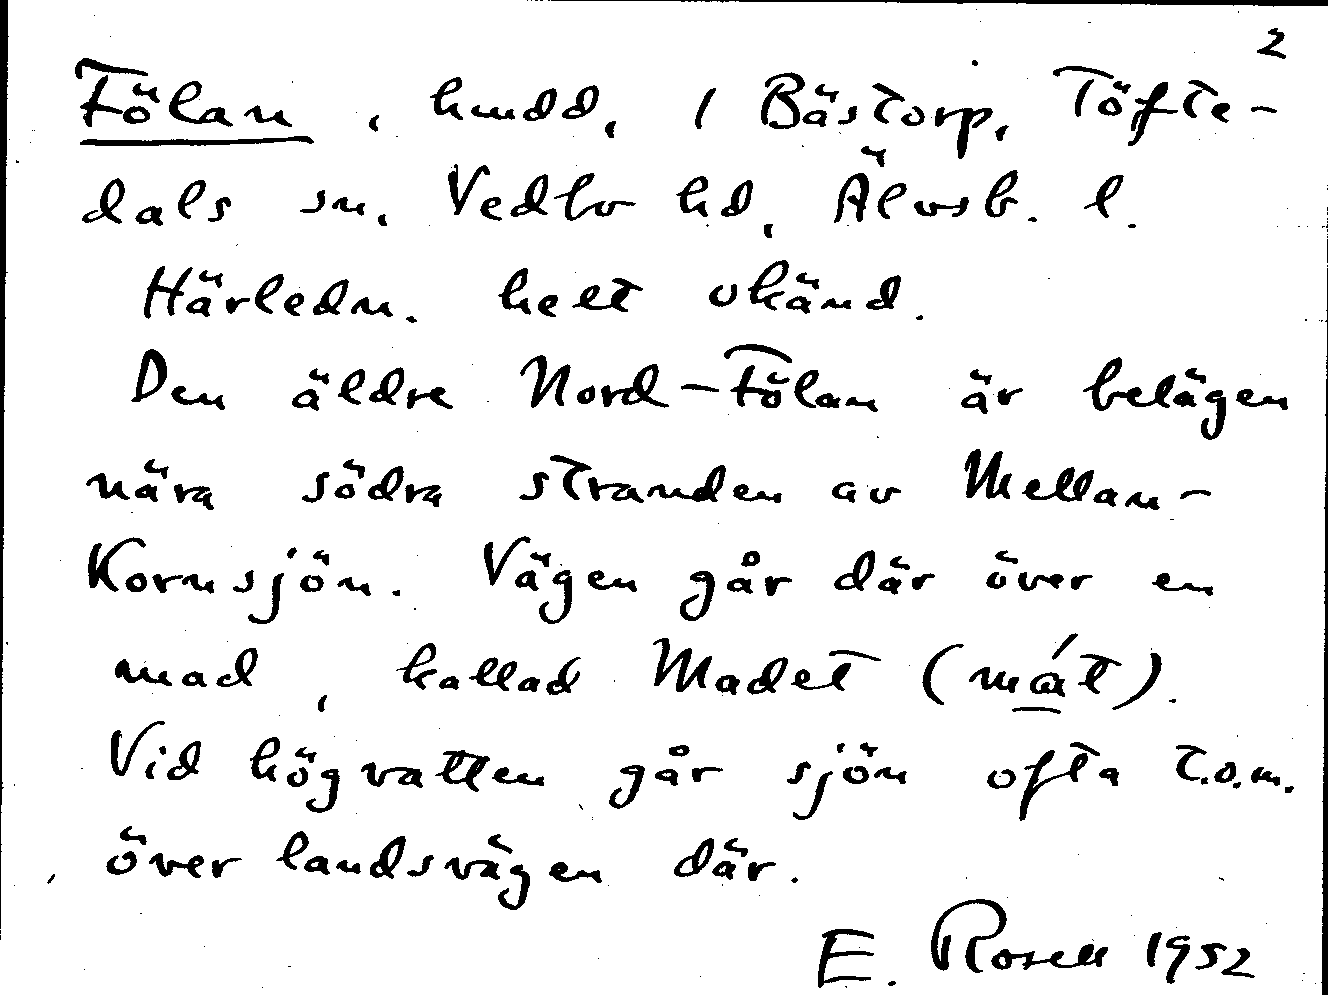 2
Fölan, hmdd, 1 Bästorp, Töfte-
dals sn, Vedbo hd, Älvsb. l.
Härledn. helt okänd.
Den äldre Nord-Fölan är belägen
nära södra stranden av Mellan-
Kornsjön. Vägen går där över en
mad, kallad Madet (mát).
Vid högvatten går sjön ofta t.o.m.
över landsvägen där.
E. Rosell 1952